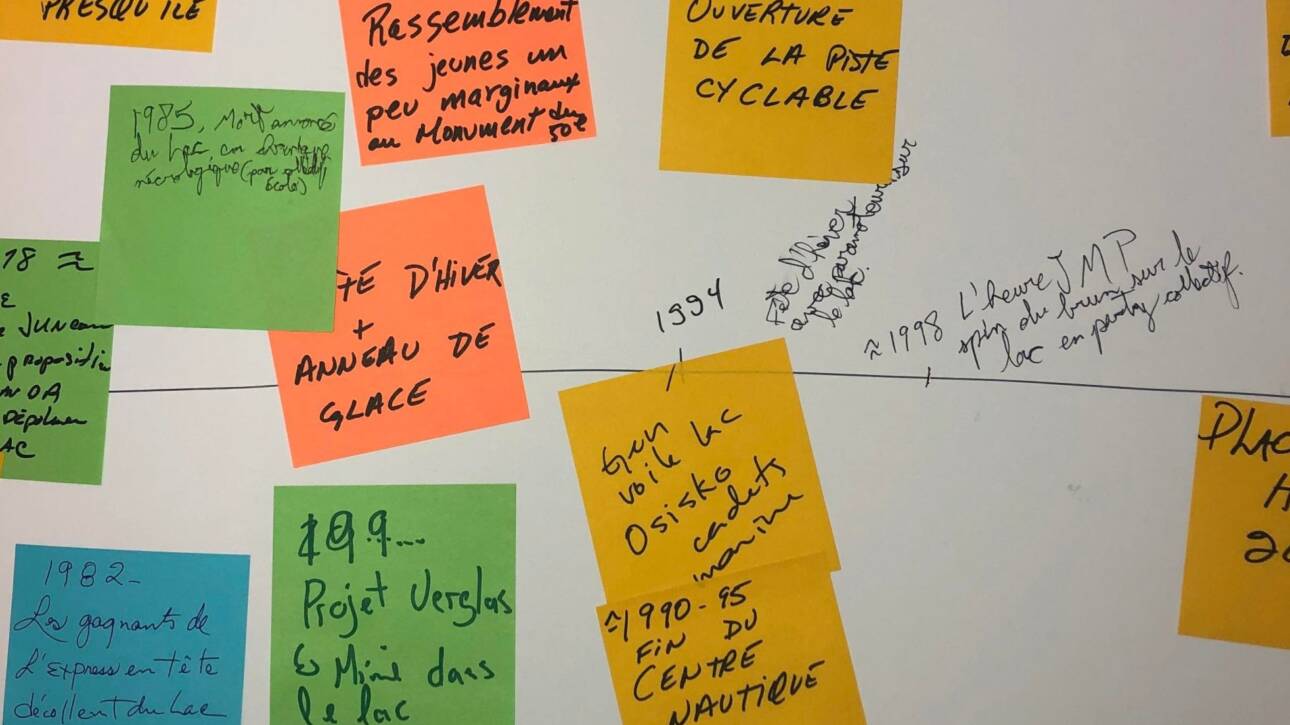 PRESQU'ILE
Rassemblement
des jeunes un
peu marginaux
au Monument du
50e
OUVERTURE
DE LA PISTE
CYCLABLE
1985, Mort
du Lac, en
nécrologique (par
École)
18 ≈
E
JUNEAU
proposition
NDA
AC
TE D'HIVER
+
ANNEAU DE
GLACE
1994
Fête d'hiver
avec paramoteur sur
le lac.
≈ 1998 L'heure JMP
spin du brun sur le
lac en party collectif.
voile lac
Osisko
cadets
marine
≈1990-95
FIN DU
CENTRE
NAUTIQUE
199...
Projet Verglas
& Mine dans
le lac
1982-
Les gagnants de
L'Express en tête
décollent du Lac
PLAC
H
20